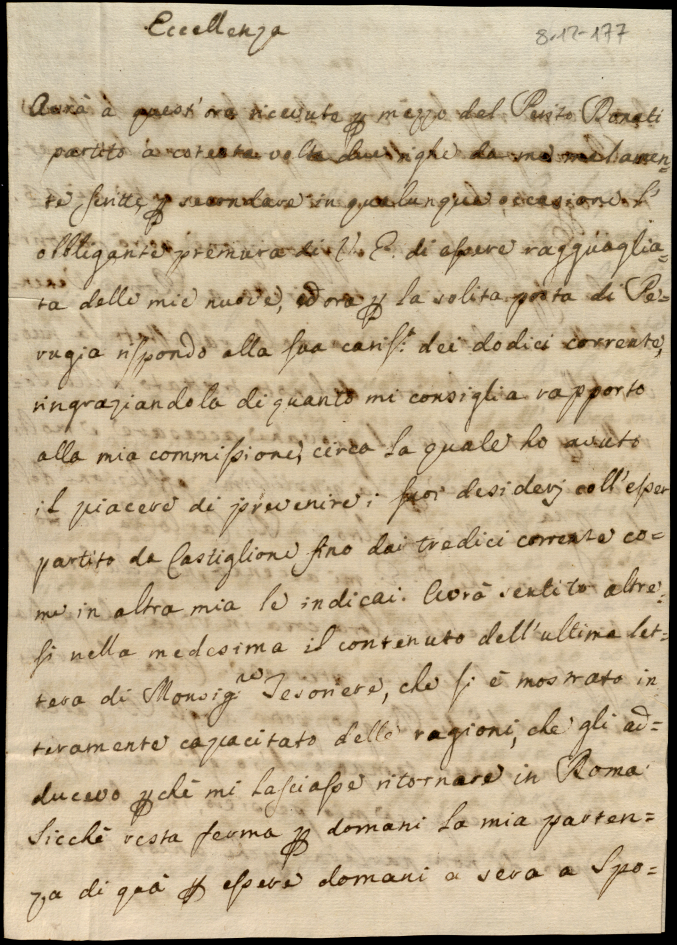 Eccellenza
8-12-177
Avrà a quest'ora ricevute p mezzo del Perito Donati
partito a coteste volte due righe da me malamen=
te scritte, p secondare in qualunque occasione l'
obbligante premura di V. E. di essere ragguaglia=
ta delle mie nuove, ed ora p la solita posta di Pe=
rugia rispondo alla sua cariss.ª dei dodici corrente,
ringraziandola di quanto mi consiglia rapporto
alla mia commissione, circa la quale ho avuto
il piacere di prevenire i suoi desiderj coll'esser
partito da Castiglione fino dai tredici corrente co=
me in altra mia le indicai. Avrà sentito altre=
si nella medesima il contenuto dell'ultima let=
tera di Monsig.re Tesoriere, che si è mostrato in
teramente capacitato delle ragioni, che gli ad=
ducevo pchè mi lasciasse ritornare in Roma
Sicchè resta ferma p domani la mia parten=
za di quà p essere domani a sera a Spo=